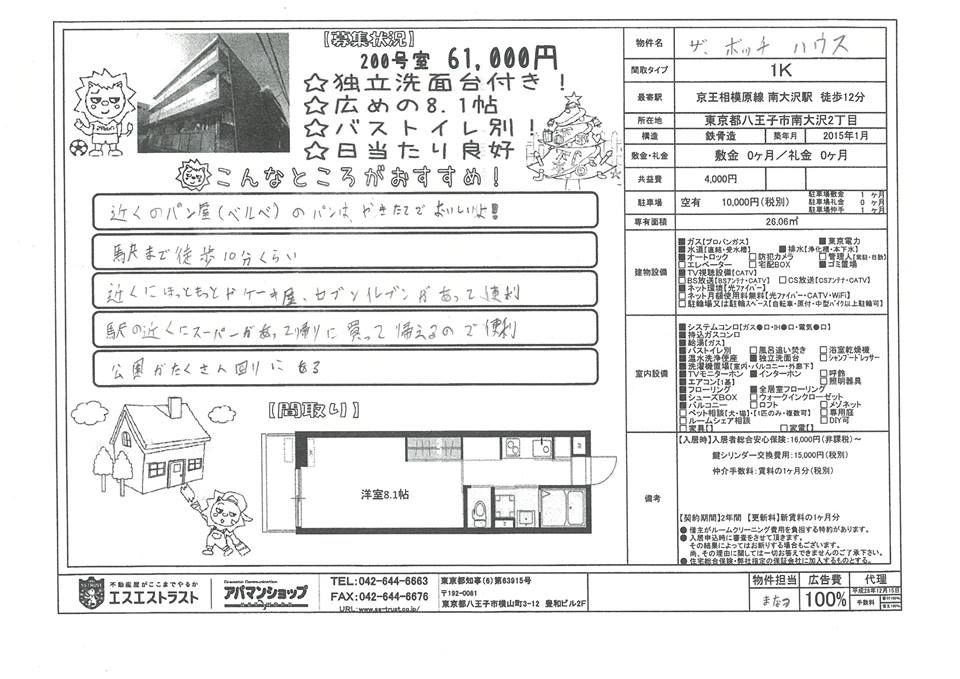 【募集状況】
200号室 61,000円
☆独立洗面台付き！
☆広めの8.1帖
☆バストイレ別！
☆日当たり良好
こんなところがおすすめ！
近くのパン屋(ベルベ)のパンは、やきたてでおいしいよ!
駅まで徒歩10分くらい
近くにほっともっとやケーキ屋、セブンイレブンがあって便利
駅の近くにスーパーがあって帰りに買って帰えるので便利
公園がたくさん回りにある
【間取り】
洋室8.1帖
物件名 ザ、ボッチ ハウス
間取タイプ 1K
最寄駅 京王相模原線 南大沢駅 徒歩12分
所在地 東京都八王子市南大沢2丁目
構造 鉄骨造 築年月 2015年1月
敷金・礼金 敷金 0ヶ月／礼金 0ヶ月
共益費 4,000円
駐車場 空有 10,000円(税別)
駐車場敷金 1 ヶ月
駐車場礼金 0 ヶ月
駐車場仲手 1 ヶ月
専有面積 26.06㎡
建物設備
■ガス【プロパンガス】 ■東京電力
■水道【直結・受水槽】 ■排水【浄化槽・本下水】
■オートロック □防犯カメラ □管理人【常駐・日勤】
□エレベーター □宅配BOX ■ゴミ置場
■TV視聴設備【CATV】
□BS放送【BSアンテナ・CATV】 □CS放送【CSアンテナ・CATV】
■ネット環境【光ファイバー】
□ネット月額使用料無料【光ファイバー・CATV・WiFi】
□駐輪場又は駐輪スペース【自転車・原付・中型バイク以上駐輪可】
室内設備
■システムコンロ【ガス●口・IH●口・電気●口】
■持込ガスコンロ
■給湯【ガス】
■バストイレ別 □風呂追い焚き □浴室乾燥機
■温水洗浄便座 ■独立洗面台 □シャンプードレッサー
■洗濯機置場【室内・バルコニー・外廊下】
■TVモニターホン ■インターホン □呼鈴
■エアコン【1基】 □照明器具
■フローリング ■全居室フローリング
■シューズBOX □ウォークインクローゼット
■バルコニー □ロフト □メゾネット
□ペット相談【犬・猫】・【1匹のみ・複数可】 □専用庭
□ルームシェア相談 □DIY可
□家具【】 □家電【】
備考
【入居時】入居者総合安心保険：16,000円(非課税)～
鍵シリンダー交換費用：15,000円(税別)
仲介手数料：賃料の1ヶ月分(税別)
【契約期間】2年間 【更新料】新賃料の1ヶ月分
● 借主がルームクリーニング費用を負担する特約があります。
● 入居申込時に審査をさせて頂きます。
その結果によってはお断りする場合もございます。
尚、その理由に関しては一切お答えできませんのでご了承下さい。
● 住宅総合保険・弊社指定の保証会社に加入するものとする。
不動産屋がここまでやるか
エスエストラスト
Dramatic Communication
アパマンショップ
TEL:042-644-6663
FAX:042-644-6676
URL:www.ss-trust.co.jp/
東京都知事(6)第63915号
〒192-0081
東京都八王子市横山町3-12 豊和ビル2F
物件担当 まなつ
広告費 100%
代理
平成28年12月15日
手数料